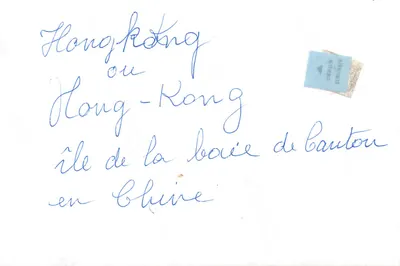 Hongkong
ou
Hong-Kong
île de la baie de Canton
en Chine